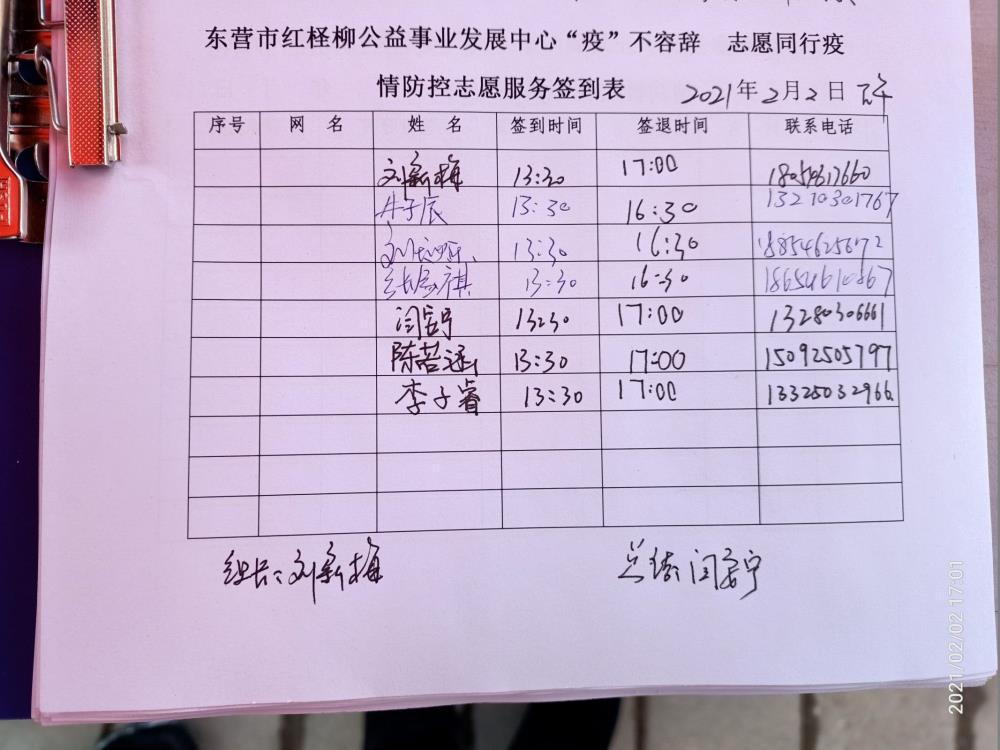 东营市红柽柳公益事业发展中心“疫”不容辞 志愿同行疫
情防控志愿服务签到表 2021年2月2日 下午
序号 网 名 姓 名 签到时间 签退时间 联系电话
刘新梅 13:30 17:00
牛子辰 13:30 16:30 13210301767
13:30 16:30 18854625672
13:30 16:30
闫 宁 13:30 17:00 13280306661
陈若涵 13:30 17:00 15092505797
李子睿 13:30 17:00 13325032966
组长:刘新梅
总结:闫 宁
2021/02/02 17:01